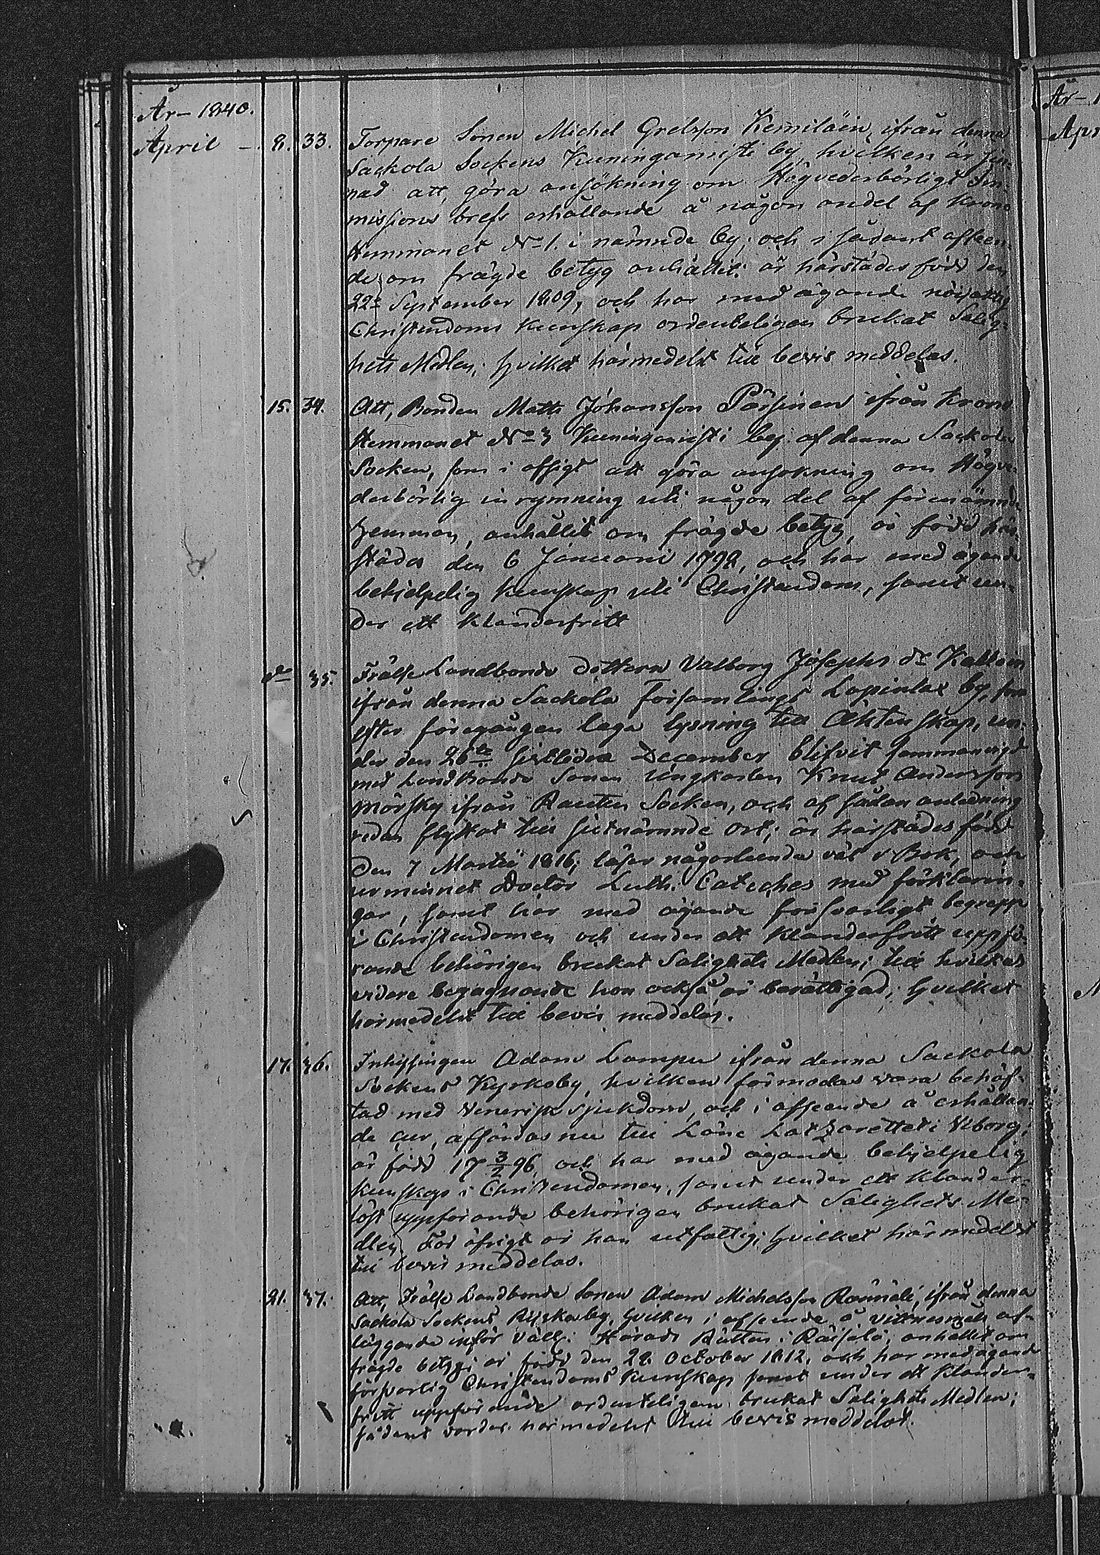 År 1840.
April 8. 33. Torpare Sonen Michel Grelsson Kemiläin, ifrån denna
Sackola Sockens Kuninganristi by hvilken är sin-
nad att, göra ansökning om Högvederbörligt Im-
missions brefs erhållande å någon andel af Krono
Hemmanet No 1. i nämnde by, och i sådant afseen-
de om frägde betyg anhållit: är härstädes född den
22 September 1809, och har med ägande nöjaktig
Christendoms Kunskap ordenteligen brukat Salig-
hets Medlen; hvilket härmedelst till bevis meddelas.
15. 34. Att, Bonden Matts Johansson Pärssinen ifrån Krono
Hemmanet No 3 Kuninganristi by af denna Sackola
Socken, som i afsigt att göra ansökning om Högve-
derbörlig inrymning uti någon del af förenämnde
Hemman, anhållit om frägde betyg, är född här-
städes den 6 Januarii 1792, och har med ägande
behjelpelig kunskap uti Christendom, samt un-
der ett Klanderfritt
35. Frälse Landbonde dottern Valborg Josephs dr Kallöin
ifrån denna Sackola Församlings Lapinlax by, som
efter föregången laga lysning till Äktenskap, un-
der den 26te sistledne December blifvit sammanvigd
med Landbonde Sonen Ungkarlen Knut Andersson
Mörsky ifrån Rautus Socken, och af sådan anledning
redan flyttat till sistnämnde ort; är härstädes född
den 7 Martii 1816, läser någorlunda väl i Bok, och
ur minnet Doctor Luth. Cateches med förklarin-
gar, samt har med ägande försvarligt begrepp
i Christendomen och under ett Klanderfritt uppfö-
rande behörigen brukat Salighets Medlen; till hvilkas
vidare begagnande hon också är berättigad; hvilket
härmedelst till bevis meddelas.
17. 36. Inhysingen Adam Lampu ifrån denna Sackola
Sockens Kyrkoby, hvilken förmodas vara behäf-
tad med Venerisk sjukdom, och i afseende å erhållan-
de cur, affärdas nu till Läne Lazarettet i Viborg;
är född 17 3/2 96, och har med ägande behjelpelig
kunskap i Christendomen, samt under ett Klander-
löst uppförande behörigen brukat Salighets Me-
dlen. För öfrigt är han utfattig; hvilket härmedelst
till bevis meddelas.
21. 37. Att, Frälse Landbonde Sonen Adam Michelsson ifrån denna
Sackola Sockens by, hvilken i afseende å vittnesmåls af-
läggande inför Härads Rätten i Räisälä, anhållit om
frägde betyg; är född den 28 October 1812, och har med ägande
försvarlig Christendoms Kunskap samt under ett Klander-
fritt uppförande ordenteligen brukat Salighets Medlen;
sådant varder härmedelst till bevis meddelat.